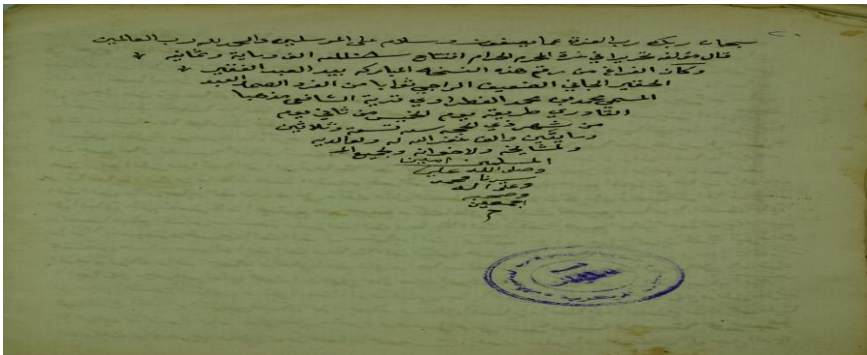 سبحان ربك رب العزة عما يصفون وسلام على المرسلين والحمد لله رب العالمين
قال مؤلفه تحريرا في غرة المحرم الحرام افتتاح سنة الف وماية وثمانية
وكان الفراغ من رقم هذه النسخة المباركة بيد العبد الفقير
الحقير الجاني الضعيف الراجي ثوابا من الفرد الصمد العبد
المسمى محمد بن محمد قرية الشافعي مذهبا
القادري طريقة يوم الخميس من ثاني يوم
من شهر ذي الحجه سنة تسعة وثلاثين
ومايتين والف غفر الله له ولوالديه
ولمشايخه ولاخوانه ولجميع
المسلمين امين
وصلى الله على
سيدنا محمد
وعلى اله
وصحبه
اجمعين
م